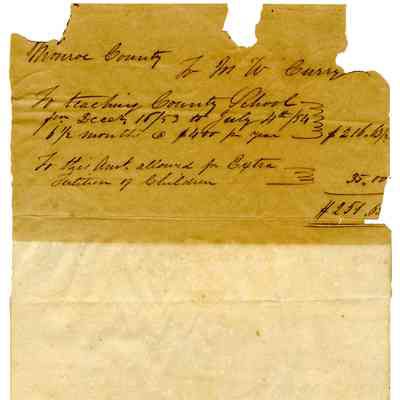 Monroe County
To M W Curry
To teaching County School
from Decer 18/53 to July 4th/54
6 1/2 months @ $400 per year $216.63
To this Amt. allowed for Extra
Tuition of Children 35.00
$251.63